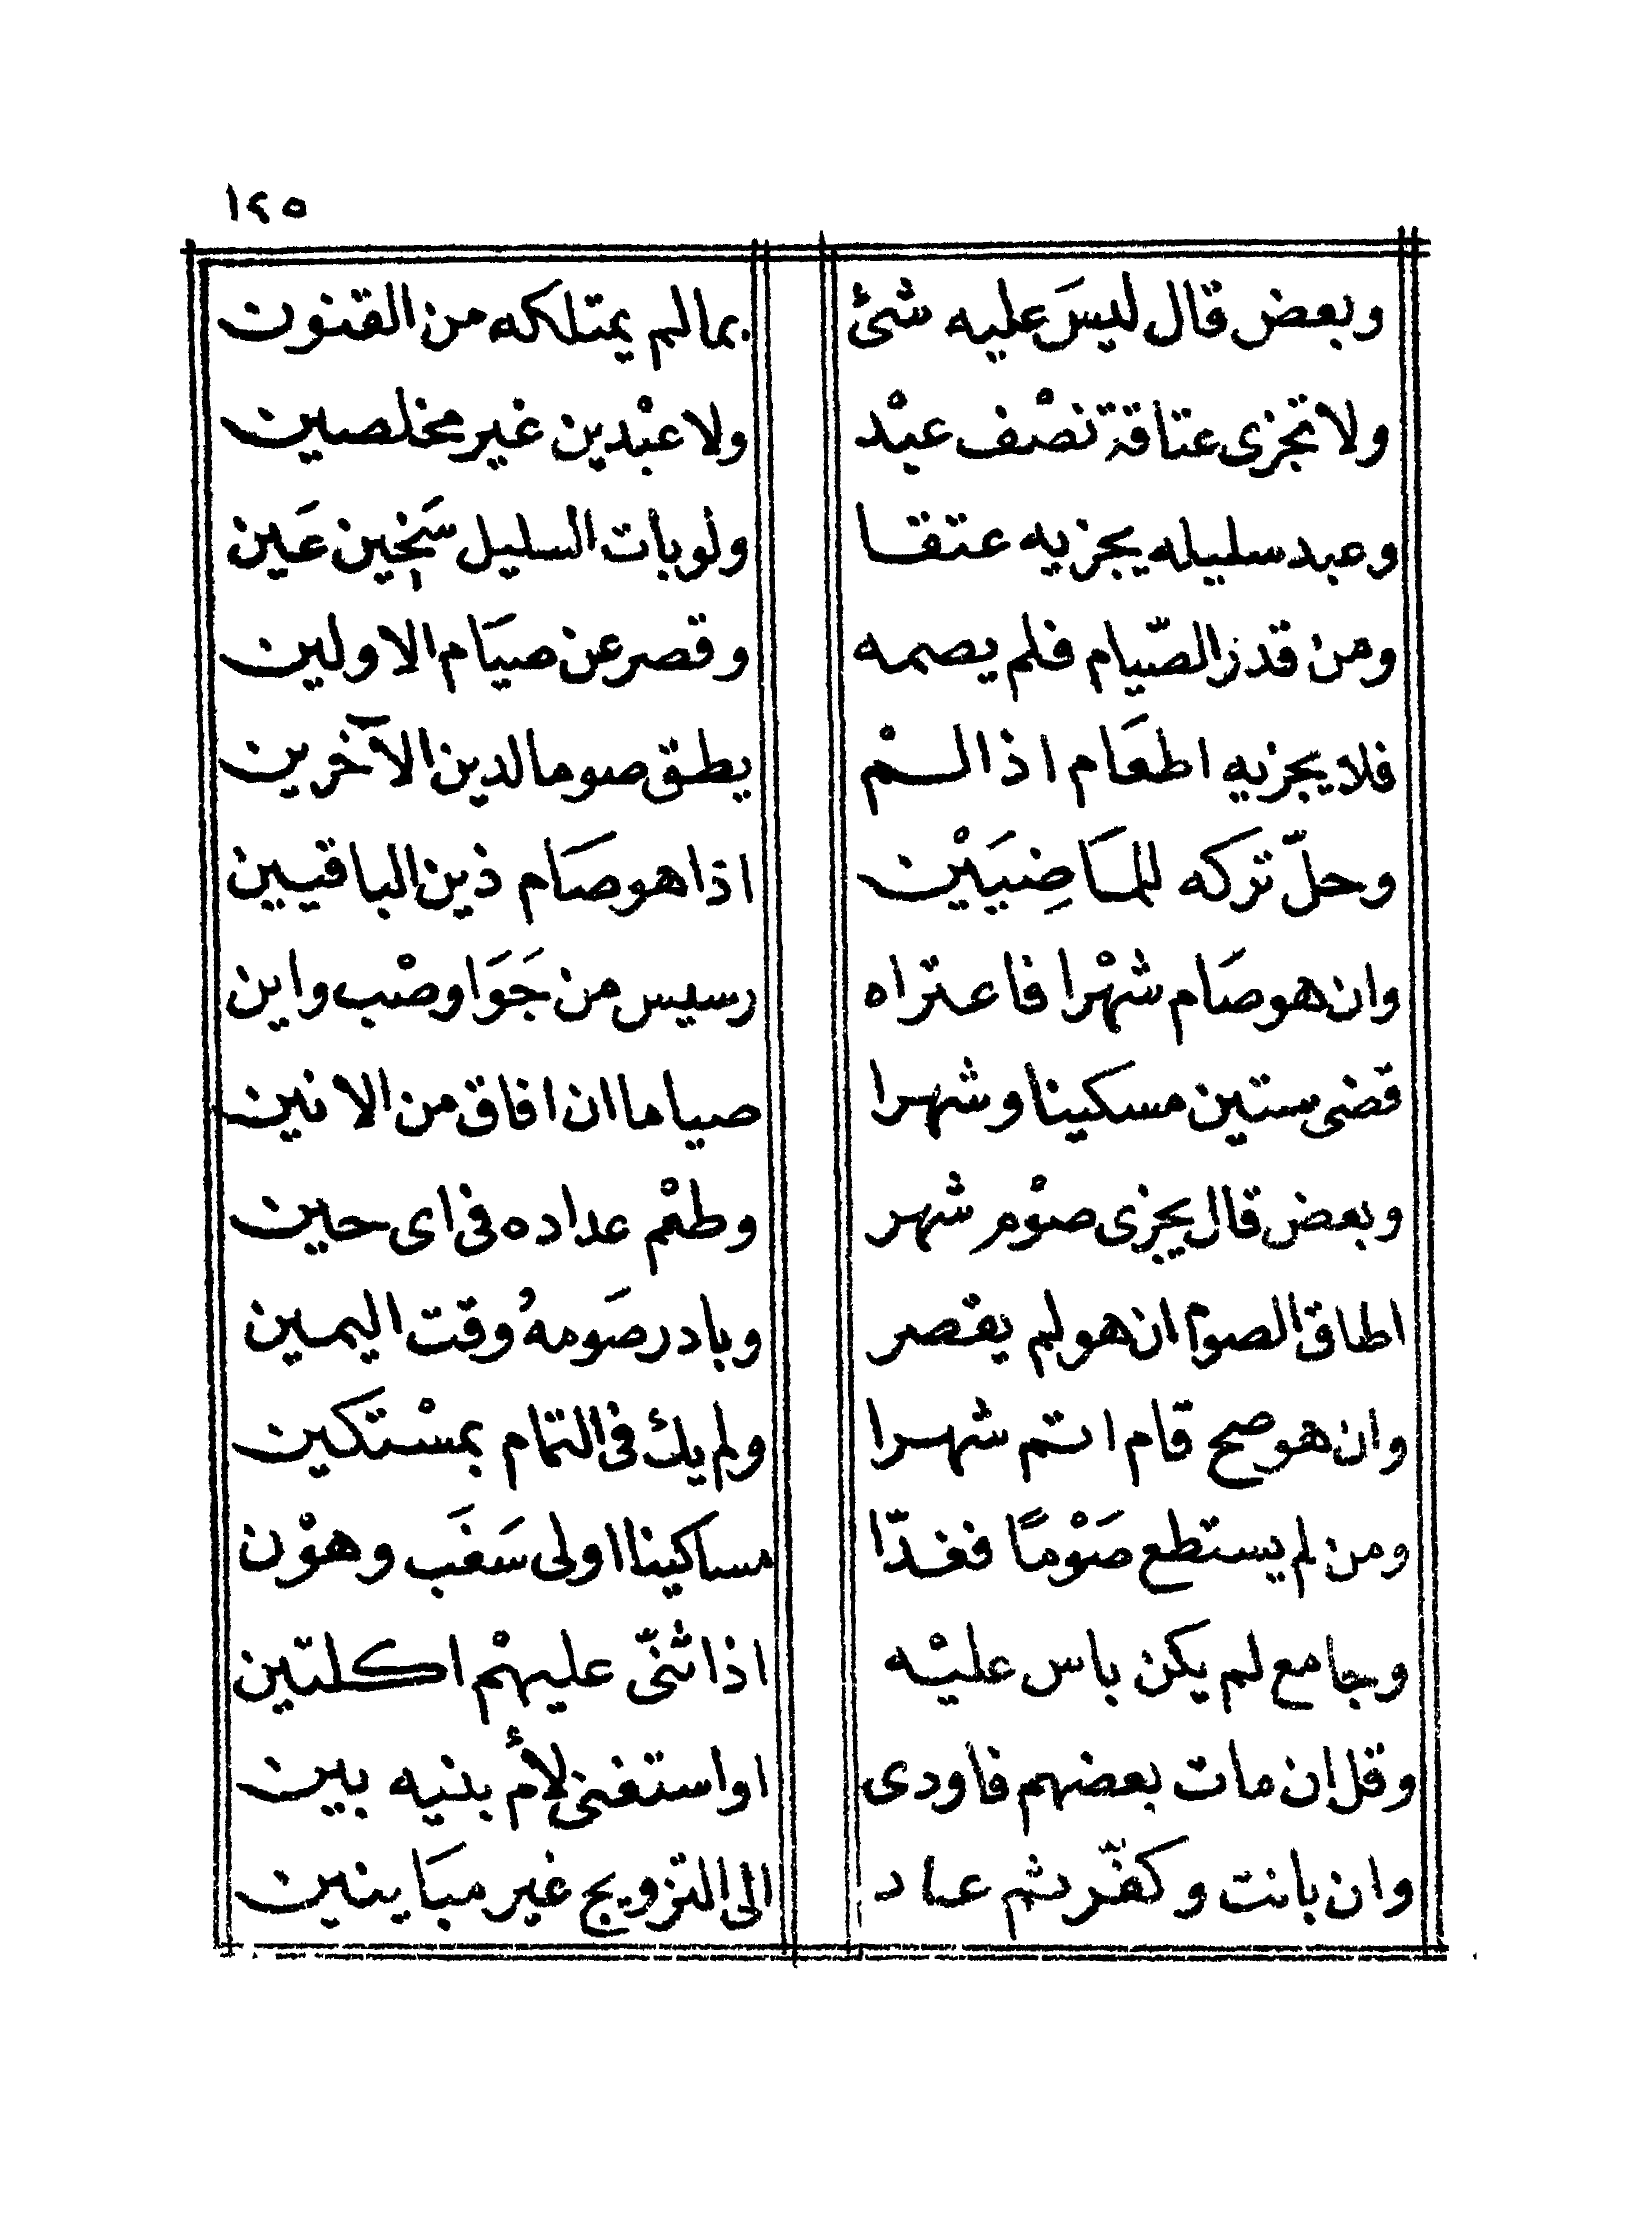 ١٤٥
وبعض قال ليسَ عليه شئ بمالم يمتلكه من القنون
ولا تجزى عتاقة نصْف عبْد ولا عبْدين غير مخلصين
وعبد سليله يجزيه عتقا ولو بات السليل سَخين عَين
ومن قدر الصّيام فلم يصمه وقصر عن صيَام الاولين
فلا يجزيه اطعَام اذا لسْم يطق صوما لدين الآخرين
وحلّ تركه للمَاضِيَيْن اذا هو صَام ذين الباقيين
وان هو صَام شهْرا فاعتراه رسيس من جَوَا وصْب واين
قضى ستين مسكينا وشهرا صياما ان افاق من الانين
وبعض قال يجزى صوْم شهر وطعْم عداده فى اى حين
اطاق الصوم ان هو لم يقصر وبادر صَومهُ وقت اليمين
وان هو صح قام اتم شهرا ولم يك فى التمام بمسْتكين
ومن لم يستطع صَوْمًا فغدّا مساكينا اولى سَغَب وهوْن
وجامع لم يكن باس عليْه اذا ثنّى عليهْم اكلتين
وقل ان مات بعضهم فاودى او استغنى لأم بنيه بين
وان بانت وكفّر ثم عاد الى التزويج غير مبَاينين